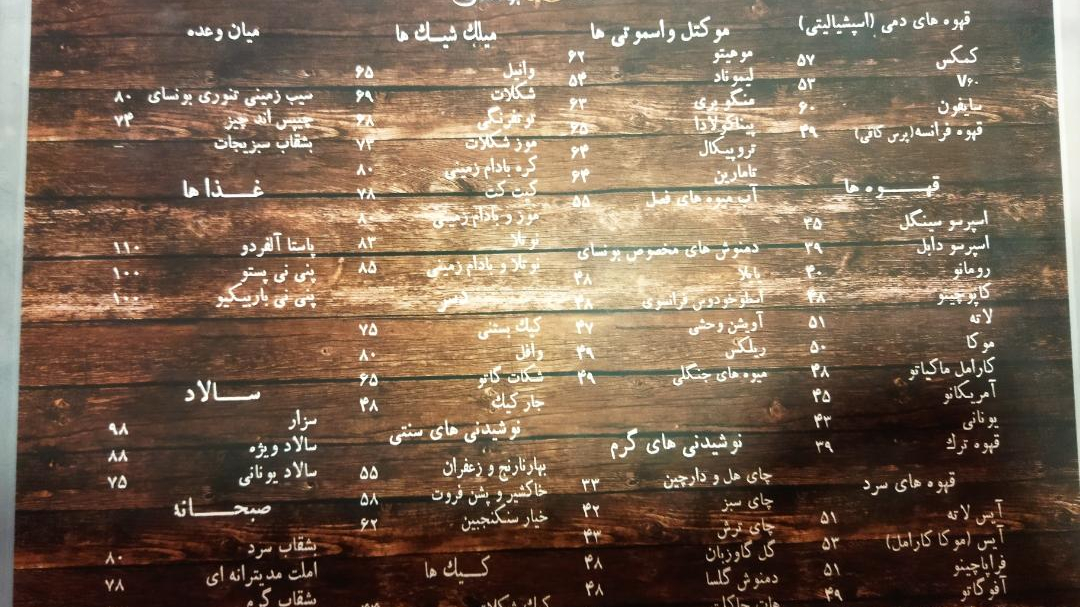 قهوه های دمی (اسپشیالیتی)
کمکس ۵۷
V۶۰ ۵۳
سایفون ۶۰
قهوه فرانسه (پرس کافی) ۴۹
قهـــوه ها
اسپرسو سینگل ۳۵
اسپرسو دابل ۳۹
رومانو ۴۰
کاپوچینو ۴۸
لاته ۵۱
موکا ۵۰
کارامل ماکیاتو ۴۸
آمریکانو ۴۵
یونانی ۴۳
قهوه ترك ۳۹
قهوه های سرد
آیس لاته ۵۱
آیس (موکا کارامل) ۵۳
فراپاچینو ۵۱
آفوگاتو ۴۹
موکتل واسموتی ها
موهیتو ۶۲
لیموناد ۵۴
منگو بری ۶۳
پیناکولادا ۶۵
تروپیکال ۶۴
تامارین ۶۴
آب میوه های فصل ۵۵
دمنوش های مخصوص بونسای
بابلا ۴۸
اسطوخودوس فرانسوی ۴۸
آویشن وحشی ۴۷
ریلکس ۴۹
میوه های جنگلی ۴۹
نوشیدنی های گرم
چای هل و دارچین ۳۳
چای سبز ۴۲
چای ترش ۴۳
گل گاوزبان ۴۸
دمنوش گلسا ۴۸
هات چاکلت
میلك شیك ها
وانیل ۶۵
شکلات ۶۹
توتفرنگی ۶۸
موز شکلات ۷۴
کره بادام زمینی ۸۰
کیت کت ۷۸
موز و بادام زمینی ۸۰
نوتلا ۸۳
نوتلا و بادام زمینی ۸۵
کیك بستنی ۷۵
وافل ۸۰
شکلات گاتو ۶۵
جار کیك ۴۸
نوشیدنی های سنتی
بهارنارنج و زعفران ۵۵
خاکشیر و پشن فروت ۵۸
خیار سکنجبین ۶۲
کـــیك ها
کیك شکلات
میان وعده
سیب زمینی تنوری بونسای ۸۰
چیپس اند چیز ۷۴
بشقاب سبزیجات –
غـــذا ها
پاستا آلفردو ۱۱۰
پنی نی پستو ۱۰۰
پنی نی باربیکیو ۱۰۰
ســـالاد
سزار ۹۸
سالاد ویژه ۸۸
سالاد یونانی ۷۵
صبحـــانه
بشقاب سرد ۸۰
املت مدیترانه ای ۷۸
بشقاب گرم